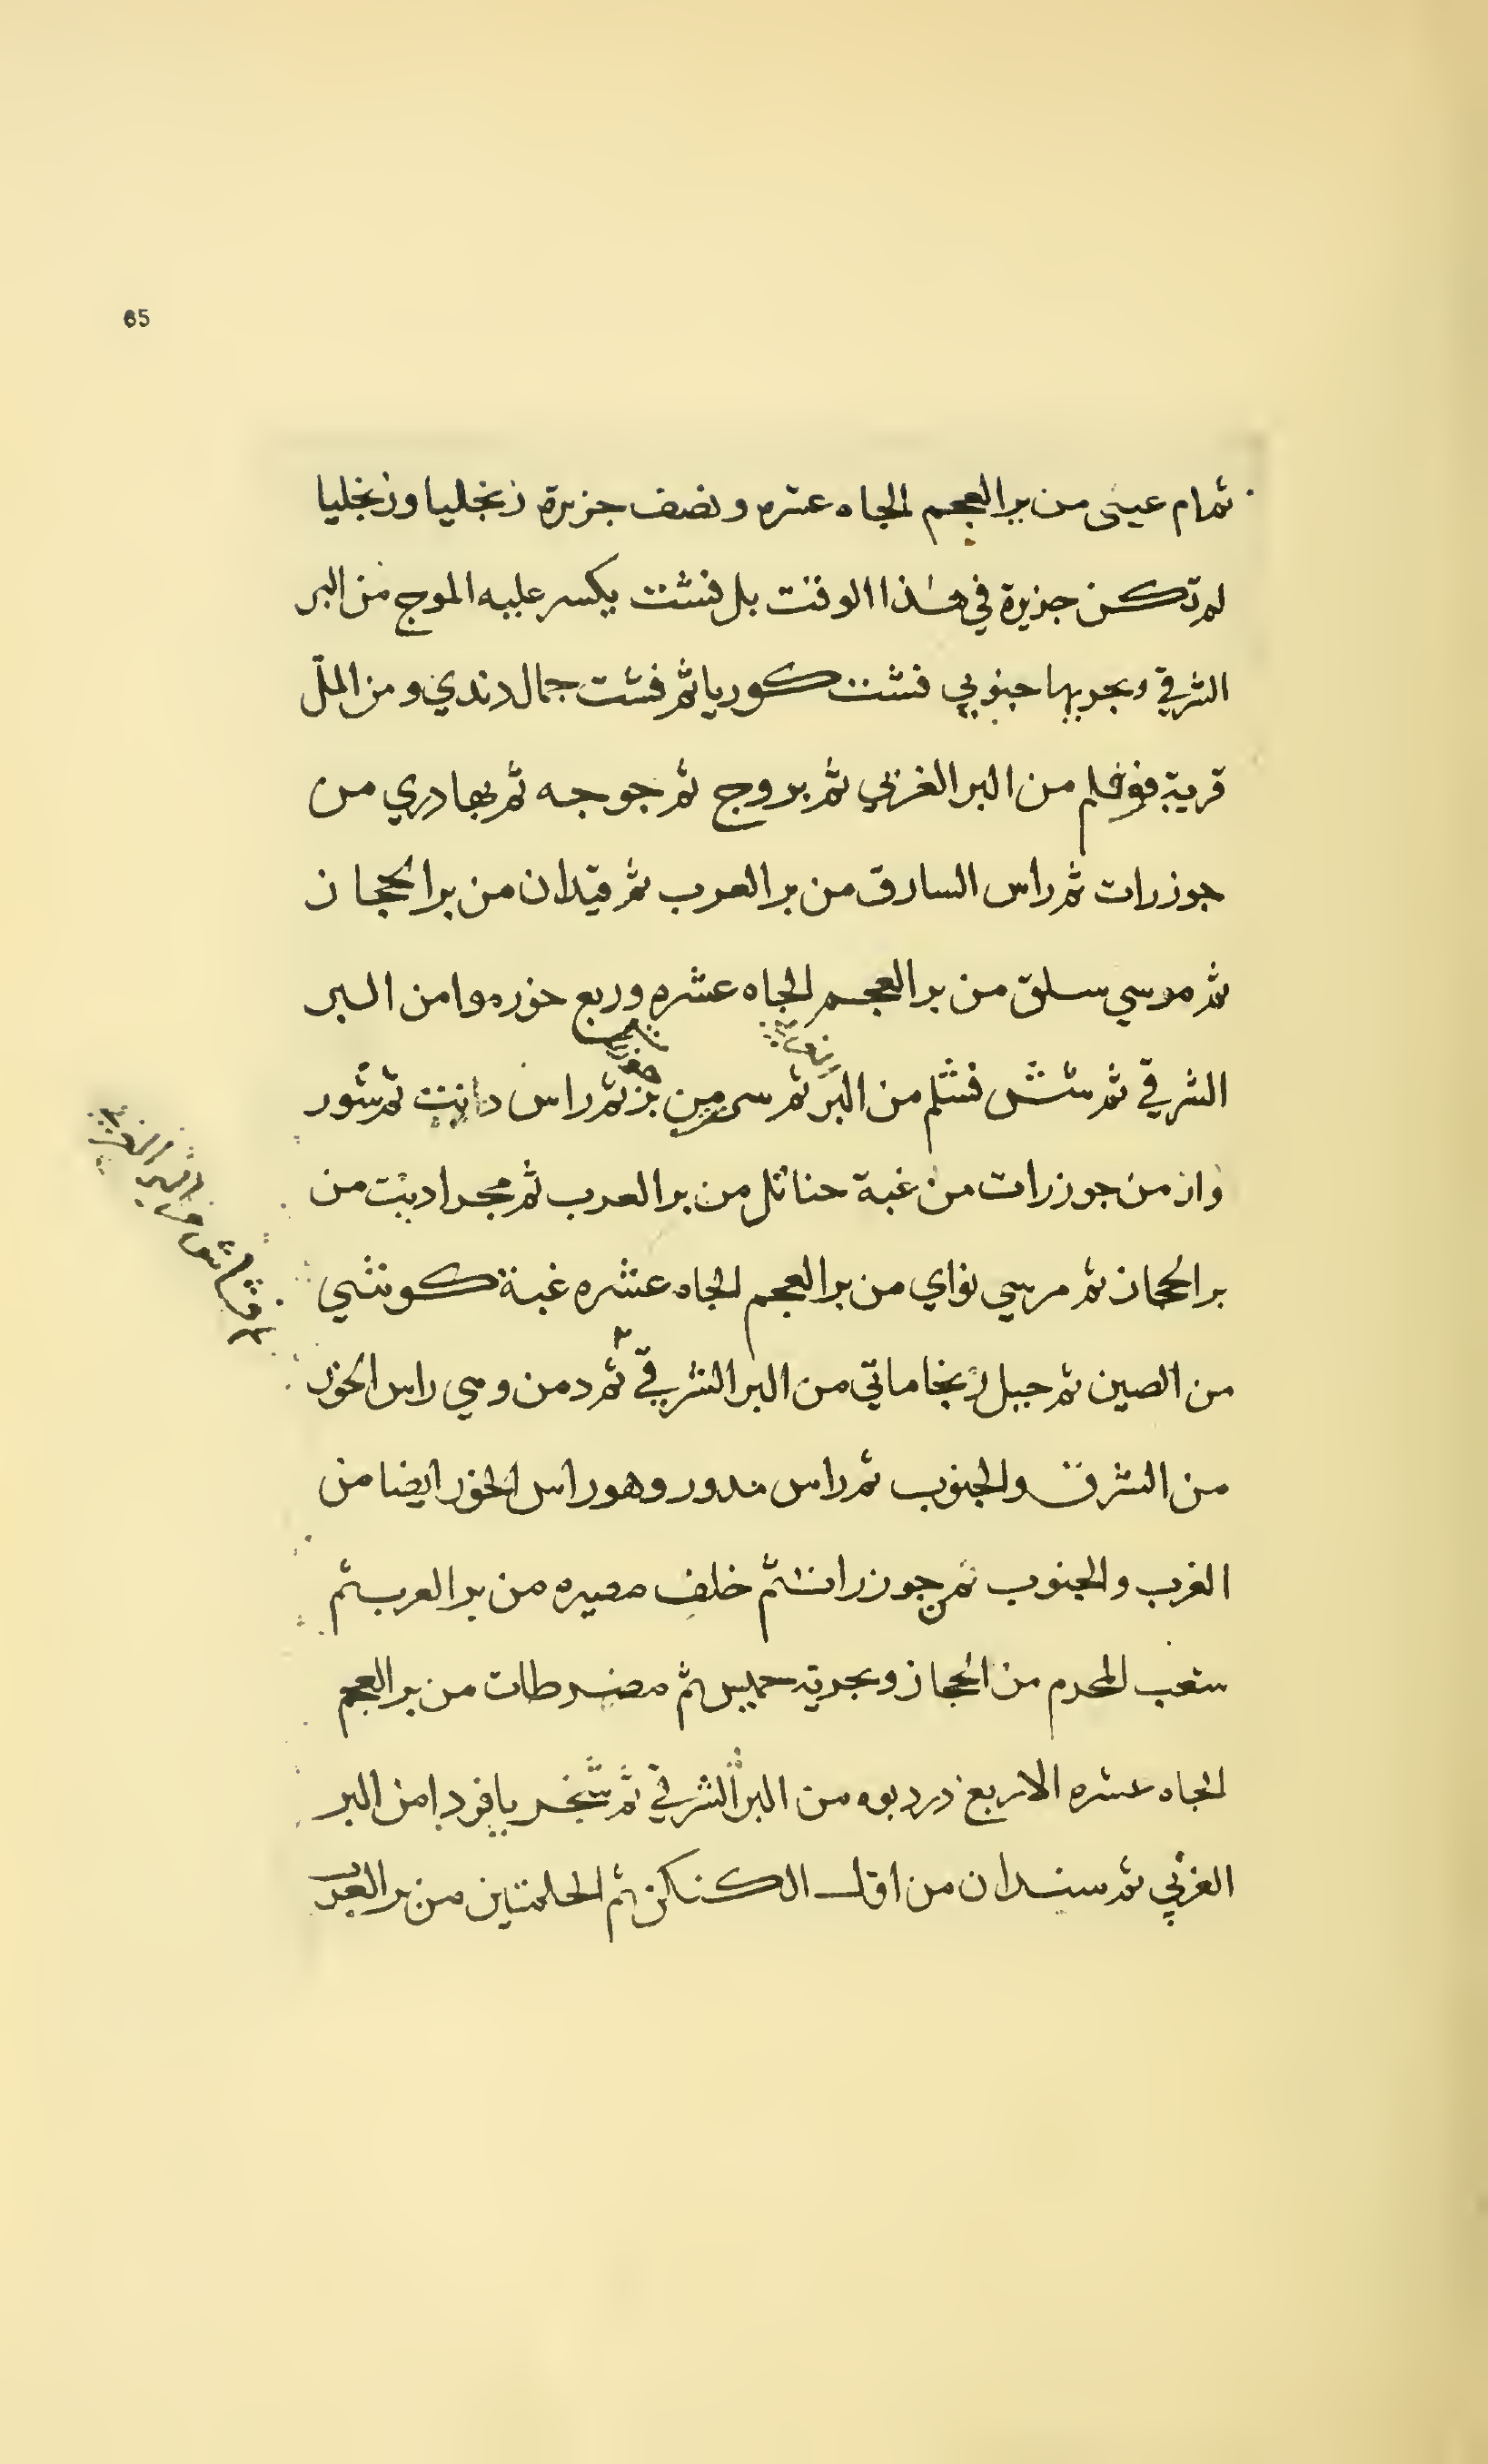 65
ثم امام عيني من بر العجم الجاه عشره ونصف جزيرة زنجليا وزنجليا
لم تكن جزيرة في هذا الوقت بل فشت يكسر عليه الموج من البر
الشرقي وبحريها جنوبي فشت كوريا ثم فشت جمال دندي ومن الملل
قرية فوفلم من البر الغربي ثم بروج ثم جوجه ثم بهادري من
جوزرات ثم راس السارق من بر العرب ثم قيدان من بر الحجاز
ثم موسي سلق من بر العجم الجاه عشره وربع خورموا من البر
الشرقي ثم ستش فشلم من البر ثم بز ثم راس دانت ثم شور
وان من جوزرات من غبة حناتل من بر العرب ثم مجراديت من
بر الحجاز ثم مرسي نواي من بر العجم الجاه عشره غبة كوشي
من الصين ثم جبل زنجاماتي من البر الشرقي ثم دمن وسي راس الخور
من الشرق والجنوب ثم راس مدور وهو راس الخور ايضا من
الغرب والجنوب ثم جوزرات ثم خلف مصيره من بر العرب ثم
شعب المحرم من الحجاز وبحريته حميس ثم مضرطات من بر العجم
الجاه عشره الا ربع دردبوه من البر الشرقي ثم شخر يافودا من البر
الغربي ثم سندان من اول الكنكن ثم الحلمتين من بر العرب